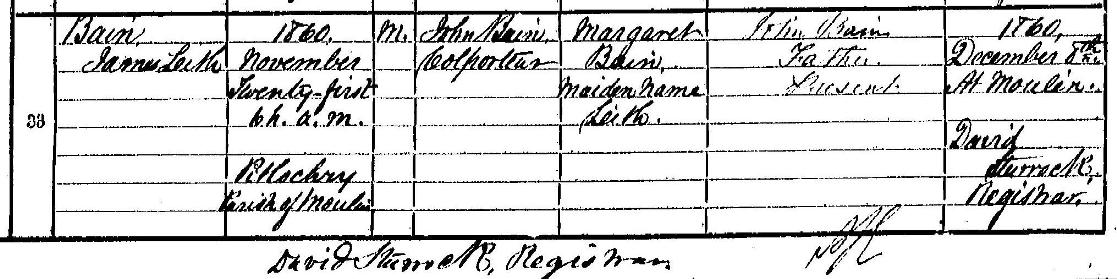 33
Bain,
James Leith
1860,
November
Twenty-first
6h. a.m.
Pitlochry
Parish of Moulin
M.
John Bain,
Colporteur
Margaret
Bain,
Maiden Name
Leith.
John Bain
Father
Present
1860,
December 8th
At Moulin.
David
Sturrock,
Registrar.
David Sturrock, Registrar.